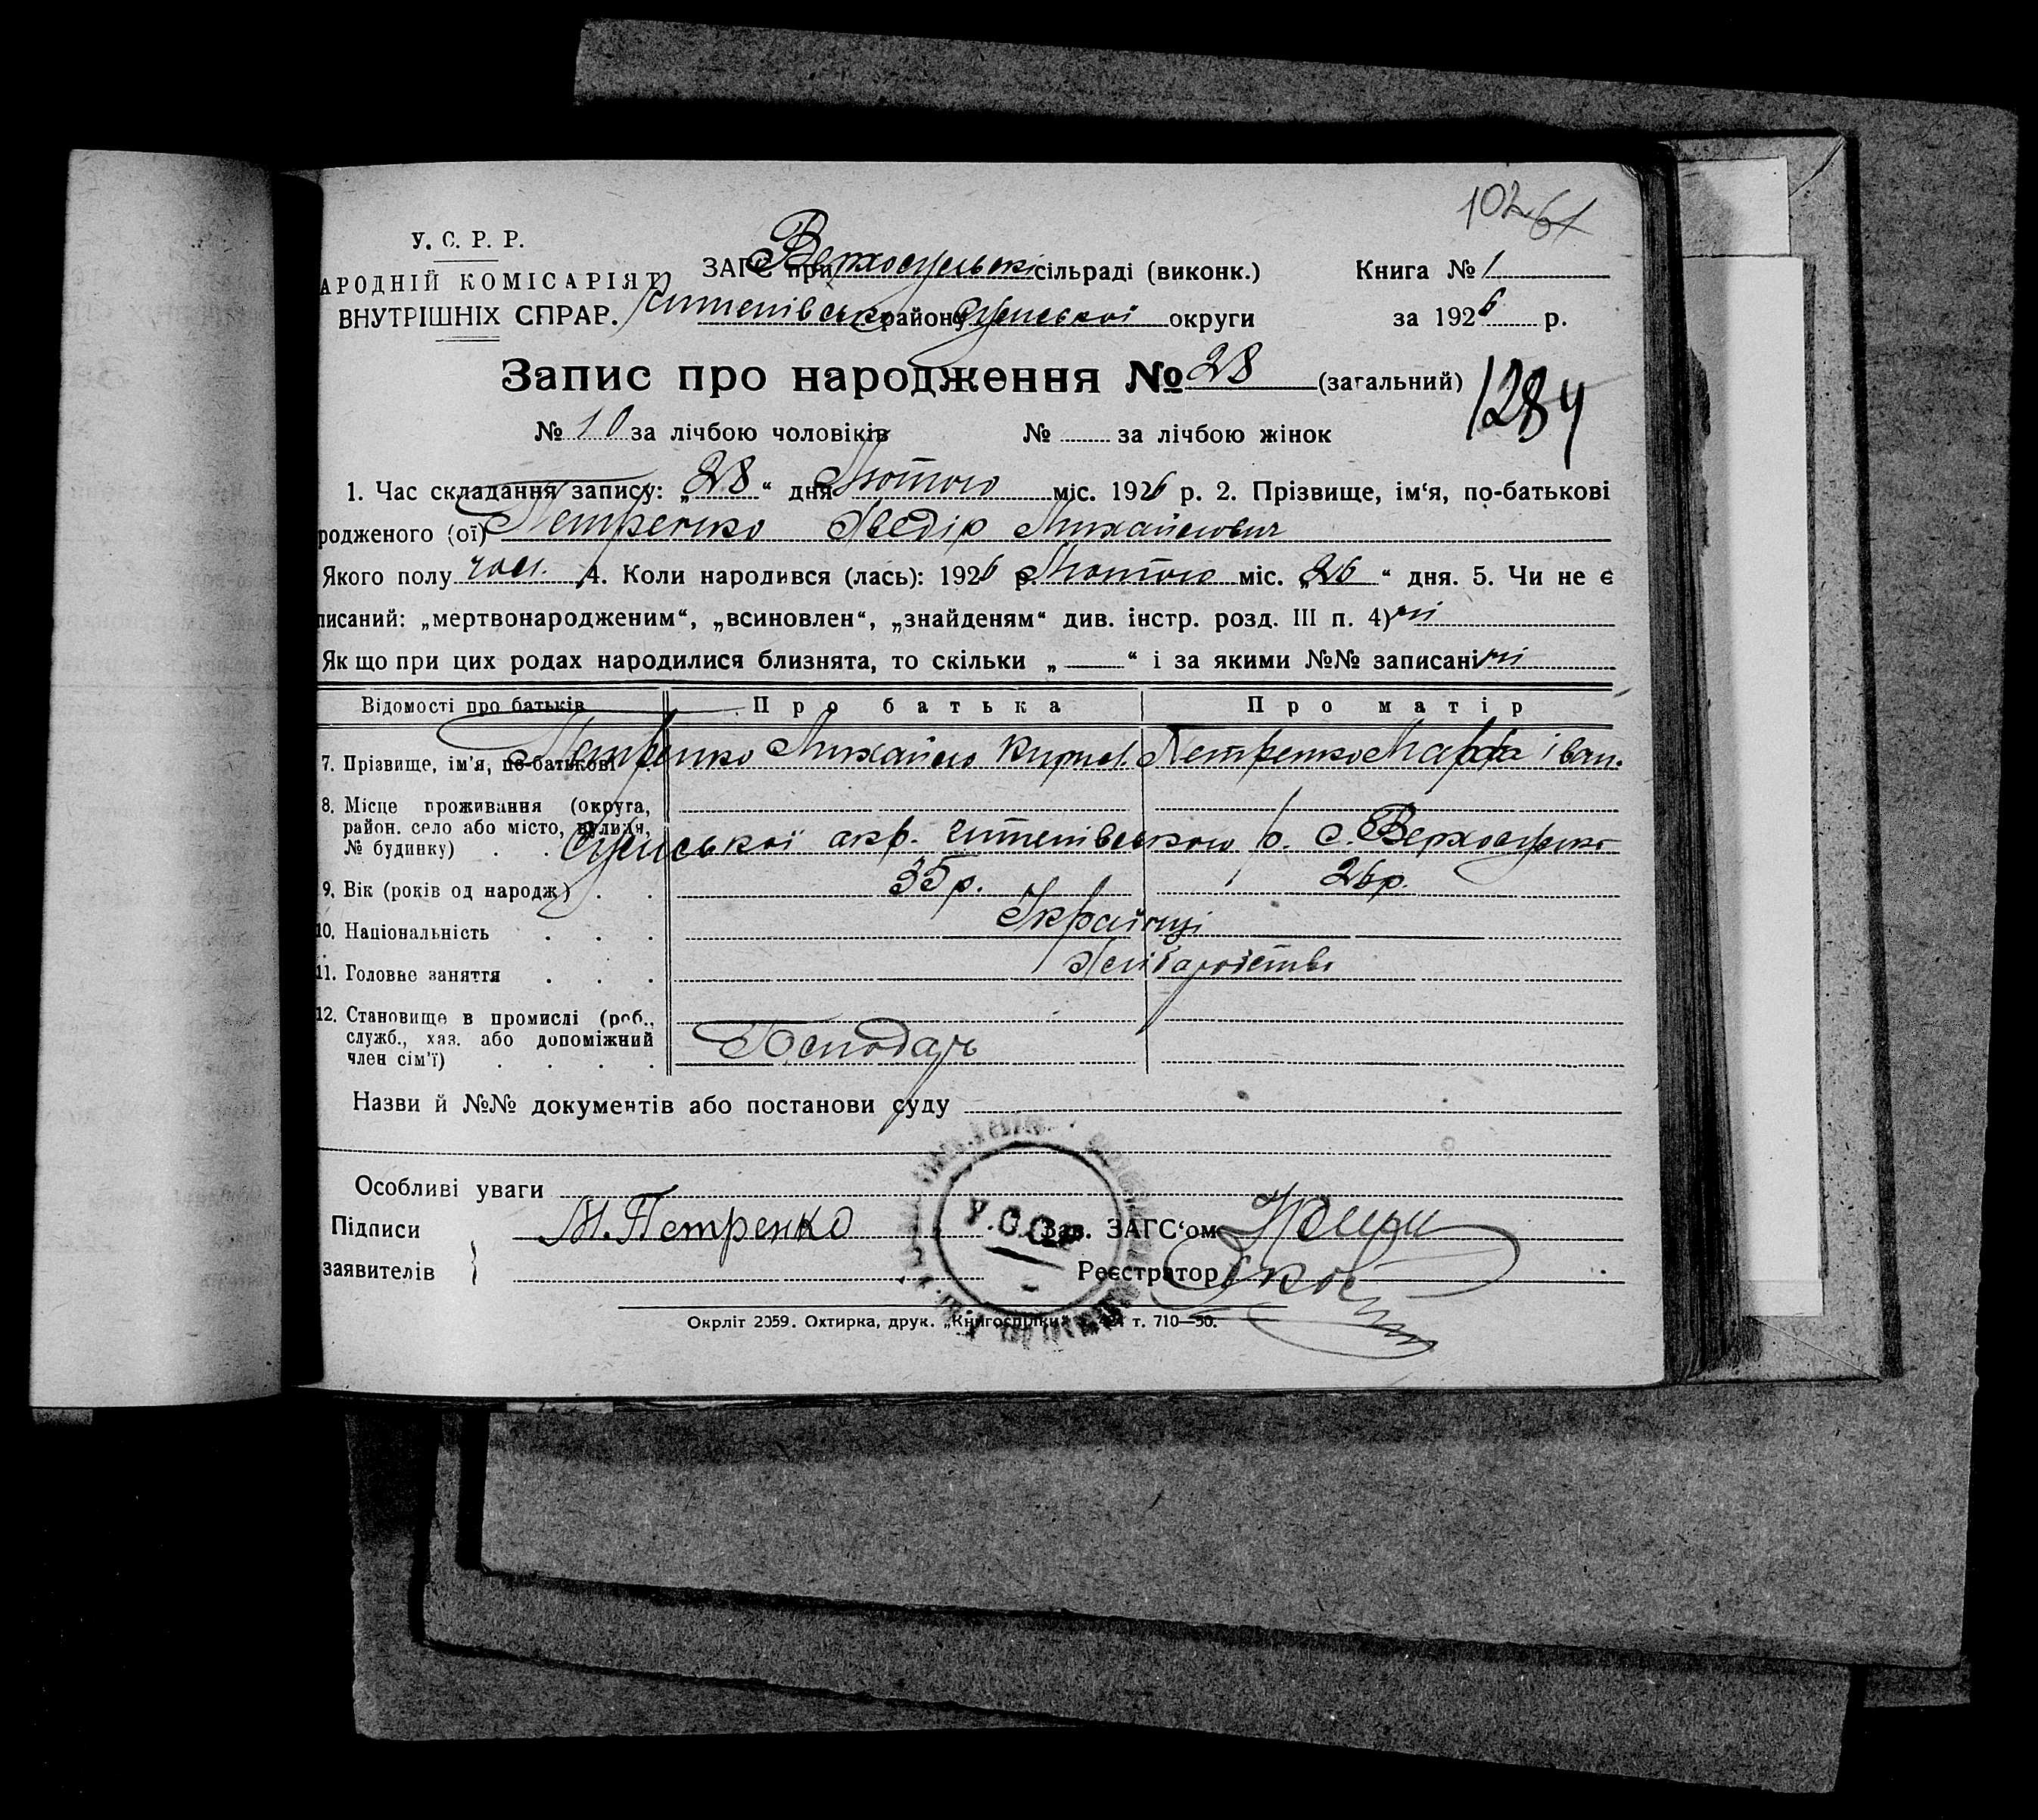 102 61
У. С. Р. Р.
АРОДНІЙ КОМІСАРІЯТ
ВНУТРІШНІХ СПРАР.
ЗАГС при Верхосульські сільраді (виконк.)
Книга № 1
району Сумської округи
за 1926 р.
Запис про народження № 28 (загальний)
1284
№ 10 за лічбою чоловіків № за лічбою жінок
1. Час складання запису: „28“ дня Лютого міс. 1926 р. 2. Прізвище, ім‘я, по-батькові
родженого (ої) Петренко Хведір Михайлович
Якого полу чол. 4. Коли народився (лась): 1926 р. Лютого міс. „26“ дня. 5. Чи не є
писаний: „мертвонародженим“, „всиновлен“, „знайденям“ див. інстр. розд. III п. 4) ні
Якщо при цих родах народилися близнята, то скільки „ “ і за якими №№ записані ні
Відомості про батьків Про батька Про матір
7. Прізвище, ім'я, по-батькові Петренко Михайло Кирил. Петренко Марфа Іван.
8. Місце проживання (округа,
район. село або місто, вулиця,
№ будинку) . . Сумської окр. Штепівського р. с. Верхосулка
9. Вік (років од народж) . . 35 р. 26 р.
10. Національність . . . Українці
11. Головне заняття . . . Хліборобство
12. Становище в промислі (роб.,
служб., хаз. або допоміжний
член сім'ї) . . . . Господарь
Назви й №№ документів або постанови суду
Особливі уваги
Підписи М. Петренко Зав. ЗАГС‘ом
заявителів } Реєстратор
У.С.С.Р
Окрліт 2059. Охтирка, друк. „Книгоспілки“ т. 710—50.